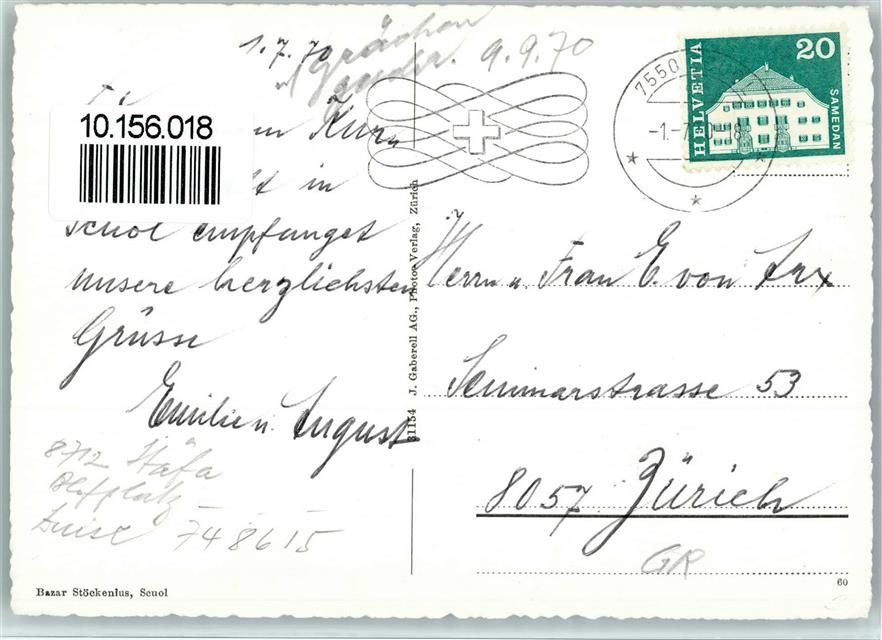 1.7.70 9.9.70
Grächen
10.156.018
Kur
in
Scuol empfanget
unsere herzlichsten
Grüsse
Emilie u. August
8712 Stäfa
Luise 748615
Bazar Stöckenius, Scuol
31154 J. Gaberell AG., Photo-Verlag, Zürich
HELVETIA
20
SAMEDAN
7550
-1.-7
18
Herrn u. Frau E. von Arx
Seminarstrasse 53
8057 Zürich
GR
60